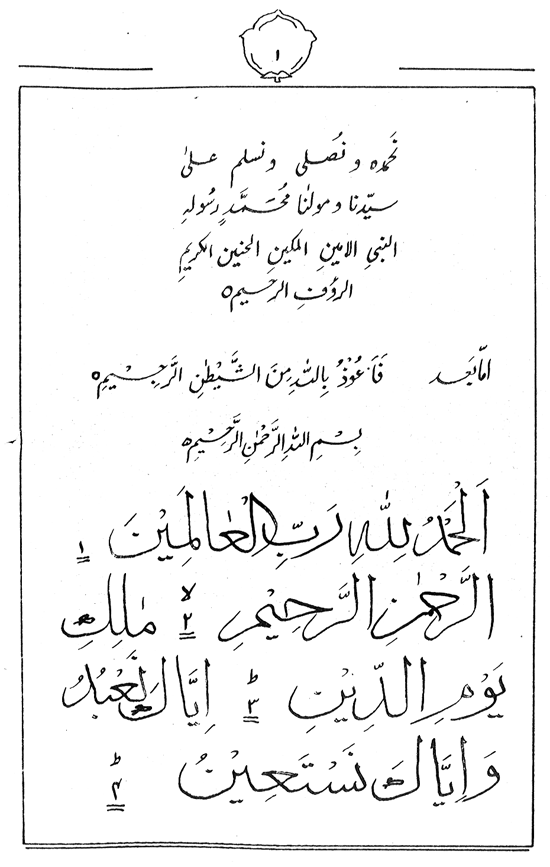 ۱
نَحْمَدُہ و نُصلی و نسلم علیٰ
سیّدنا و مولٰنا مُحَمَّدٍ رسُولہِ
النبیِ الامینِ المکینِ الحنین الکریمِ
الرؤفِ الرحیمِ○
امّا بَعد فَاَعُوْذُ بِاللهِ مِنَ الشَّیْطٰنِ الرَّجِیْمِ○
بِسْمِ اللهِ الرَّحْمٰنِ الرَّحِیْمِ○
اَلْحَمْدُ لِلّٰهِ رَبِّ الْعٰالَمِیْنَ ۱
الرَّحْمٰنِ الرَّحِیْمِ لا ۲ مٰلِكِ
یَوْمِ الدِّیْنِ ط ۳ اِیَّاكَ نَعْبُدُ
وَ اِیَّاكَ نَسْتَعِیْنُ ط ۴